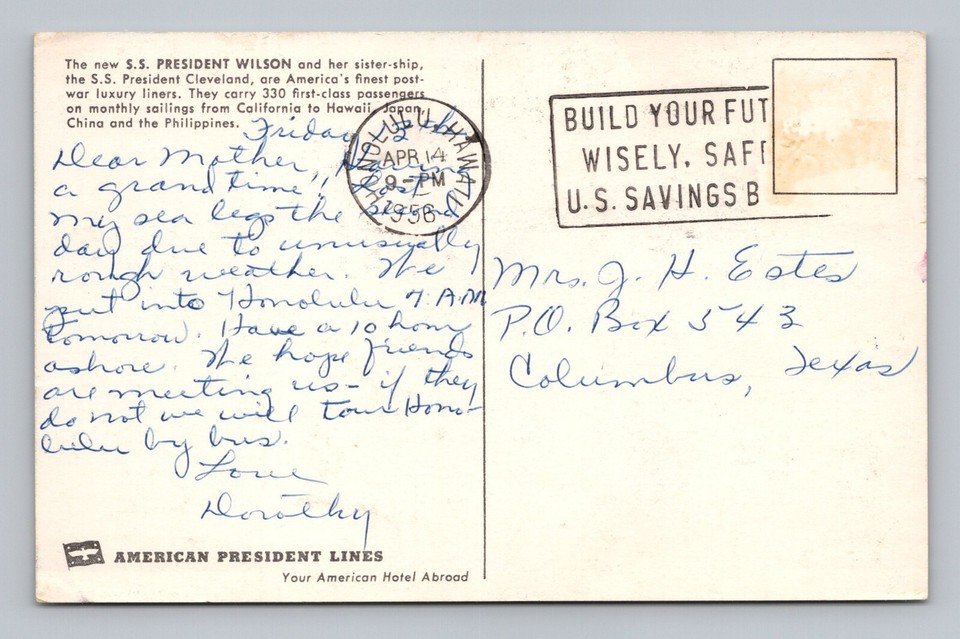 The new S.S. PRESIDENT WILSON and her sister-ship,
the S.S. President Cleveland, are America's finest post-
war luxury liners. They carry 330 first-class passengers
on monthly sailings from California to Hawaii, Japan,
China and the Philippines.
Friday
Dear Mother, Having
a grand time! Lost
my sea legs the second
day due to unusually
rough weather. We
put into Honolulu 7 A.M.
tomorrow. Have a 10 hour
ashore. We hope friends
are meeting us - if they
do not we will tour Hono-
lulu by bus.
Love
Dorothy
AMERICAN PRESIDENT LINES
Your American Hotel Abroad
HONOLULU HAWAII
APR 14
9 - PM
1956
BUILD YOUR FUT
WISELY, SAF
U.S. SAVINGS B
Mrs. J. H. Estes
P.O. Box 543
Columbus, Texas